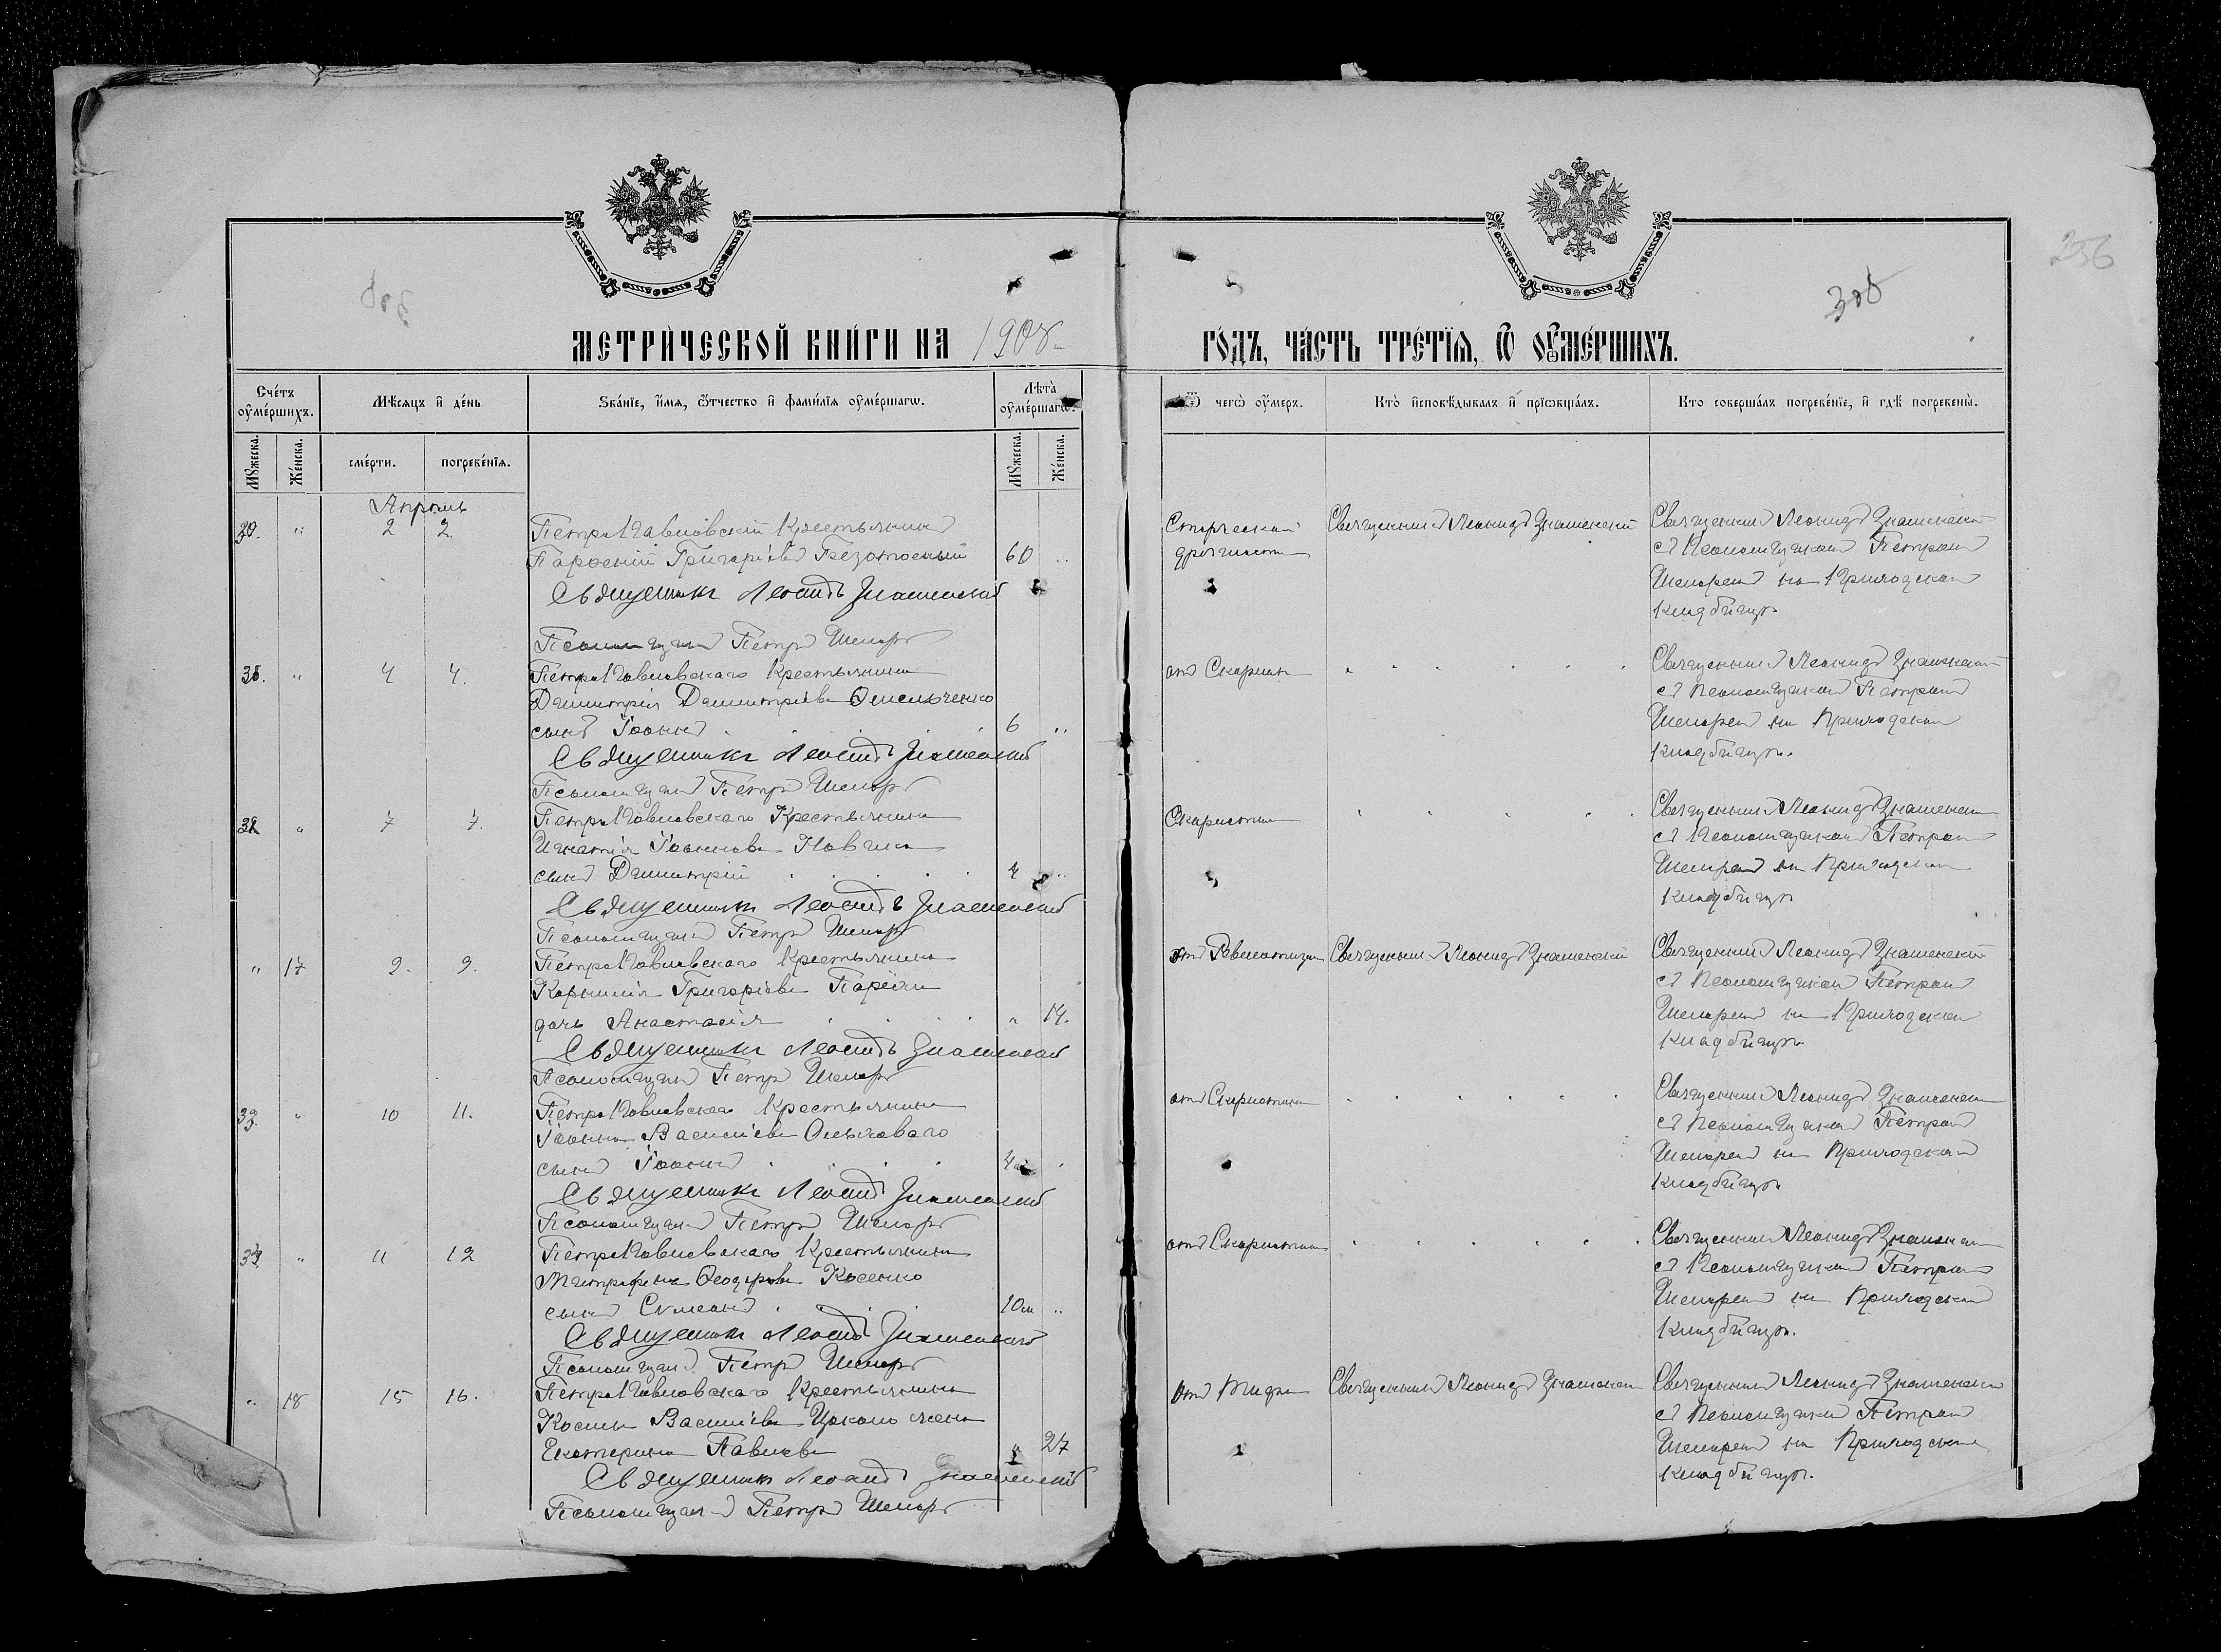 308
256
МЕТРИ́ЧЕСКОЙ КНИ́ГИ НА 1908 ГО́ДЪ, ЧА́СТЬ ТРЕ́ТЇѦ, Ѡ ОУМЕ́РШИХЪ.
Сче́тъ оуме́ршихъ.
Мѣ́сѧцъ и҆ де́нь
Зва́нїе, и҆́мѧ, ѻ҆́тчество и҆ фами́лїѧ оуме́ршагѡ.
Лѣ́та оуме́ршагѡ.
Ѿ чегѡ̀ оу҆́меръ.
Кто̀ и҆сповѣ́дывалъ и҆ прїѡбща́лъ.
Кто соверша́лъ погребе́нїе, и҆ гдѣ̀ погребены̀.
Мꙋжеска.
Же́нска.
сме́рти.
погребе́нїѧ.
Мꙋжеска.
Же́нска.
Апрѣль
2 2 Петропавловскій Крестьянинъ
Парѳеній Григоріевъ Безотосный 60
Священникъ Леонидъ Знаменскій
Псаломщикъ Петръ
Старческой Священникъ Леонидъ Знаменскій
Священникъ Леонидъ Знаменскій
съ Псаломщикомъ Петромъ
на Приходскомъ
Кладбищѣ
" 4 4. Петропавловскаго Крестьянина
Димитрія Димитріева Омельченко
сынъ Іоаннъ 6 "
Священникъ Леонидъ Знаменскій
Псаломщикъ Петръ
отъ
Священникъ Леонидъ Знаменскій
съ Псаломщикомъ Петромъ
на Приходскомъ
Кладбищѣ.
" 7 7. Петропавловскаго Крестьянина
Игнатія Іоаннова
сынъ Димитрій 4 "
Священникъ Леонидъ Знаменскій
Псаломщикъ Петръ
Скарлатина
Священникъ Леонидъ Знаменскій
съ Псаломщикомъ Петромъ
на Приходскомъ
Кладбищѣ
" 17 9. 9. Петропавловскаго Крестьянина
Корнилія Григоріева
дочь Анастасія " 14.
Священникъ Леонидъ Знаменскій
Псаломщикъ Петръ
отъ Священникъ Леонидъ Знаменскій
Священникъ Леонидъ Знаменскій
съ Псаломщикомъ Петромъ
на Приходскомъ
Кладбищѣ
33. " 10 11. Петропавловскаго Крестьянина
Іоанна Василіева Ольховаго
сынъ Іоаннъ
Священникъ Леонидъ Знаменскій
Псаломщикъ Петръ
отъ Скарлатины
Священникъ Леонидъ Знаменскій
съ Псаломщикомъ Петромъ
на Приходскомъ
Кладбищѣ
34 " 11 12 Петропавловскаго Крестьянина
Митрофана Ѳеодорова Косенко
сынъ Симеонъ 10м "
Священникъ Леонидъ Знаменскій
Псаломщикъ Петръ
отъ Скарлатины
Священникъ Леонидъ Знаменскій
съ Псаломщикомъ Петромъ
на Приходскомъ
Кладбищѣ.
" 18 15 16. Петропавловскаго Крестьянина
Космы Василіева жена
Екатерина Павлова " 27
Священникъ Леонидъ Знаменскій
Псаломщикъ Петръ
Отъ Тифа Священникъ Леонидъ Знаменскій
Священникъ Леонидъ Знаменскій
съ Псаломщикомъ Петромъ
на Приходскомъ
Кладбищѣ.